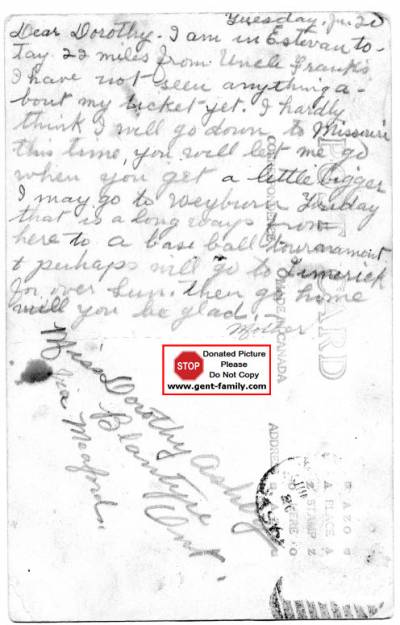 Tuesday. Jn. 20
Dear Dorothy. I am in Estevan to-
day 22 miles from Uncle Frank's
I have not seen anything a-
bout my ticket yet. I hardly
think I will go down to Missouri
this time, you will let me go
when you get a little bigger
I may go to Weyburn Friday
that is a long ways from
here to a base ball tournament
& perhaps will go to Limerick
for over Sun. then go home
will you be glad.
Mother
POST CARD
CORRESPONDENCE
MADE IN CANADA
ADDRESS
PLACE
STAMP
HERE
AZO
STOP
Donated Picture
Please
Do Not Copy
www.gent-family.com
Miss Dorothy Ashley
Blantyre
Ont.
Via Meaford